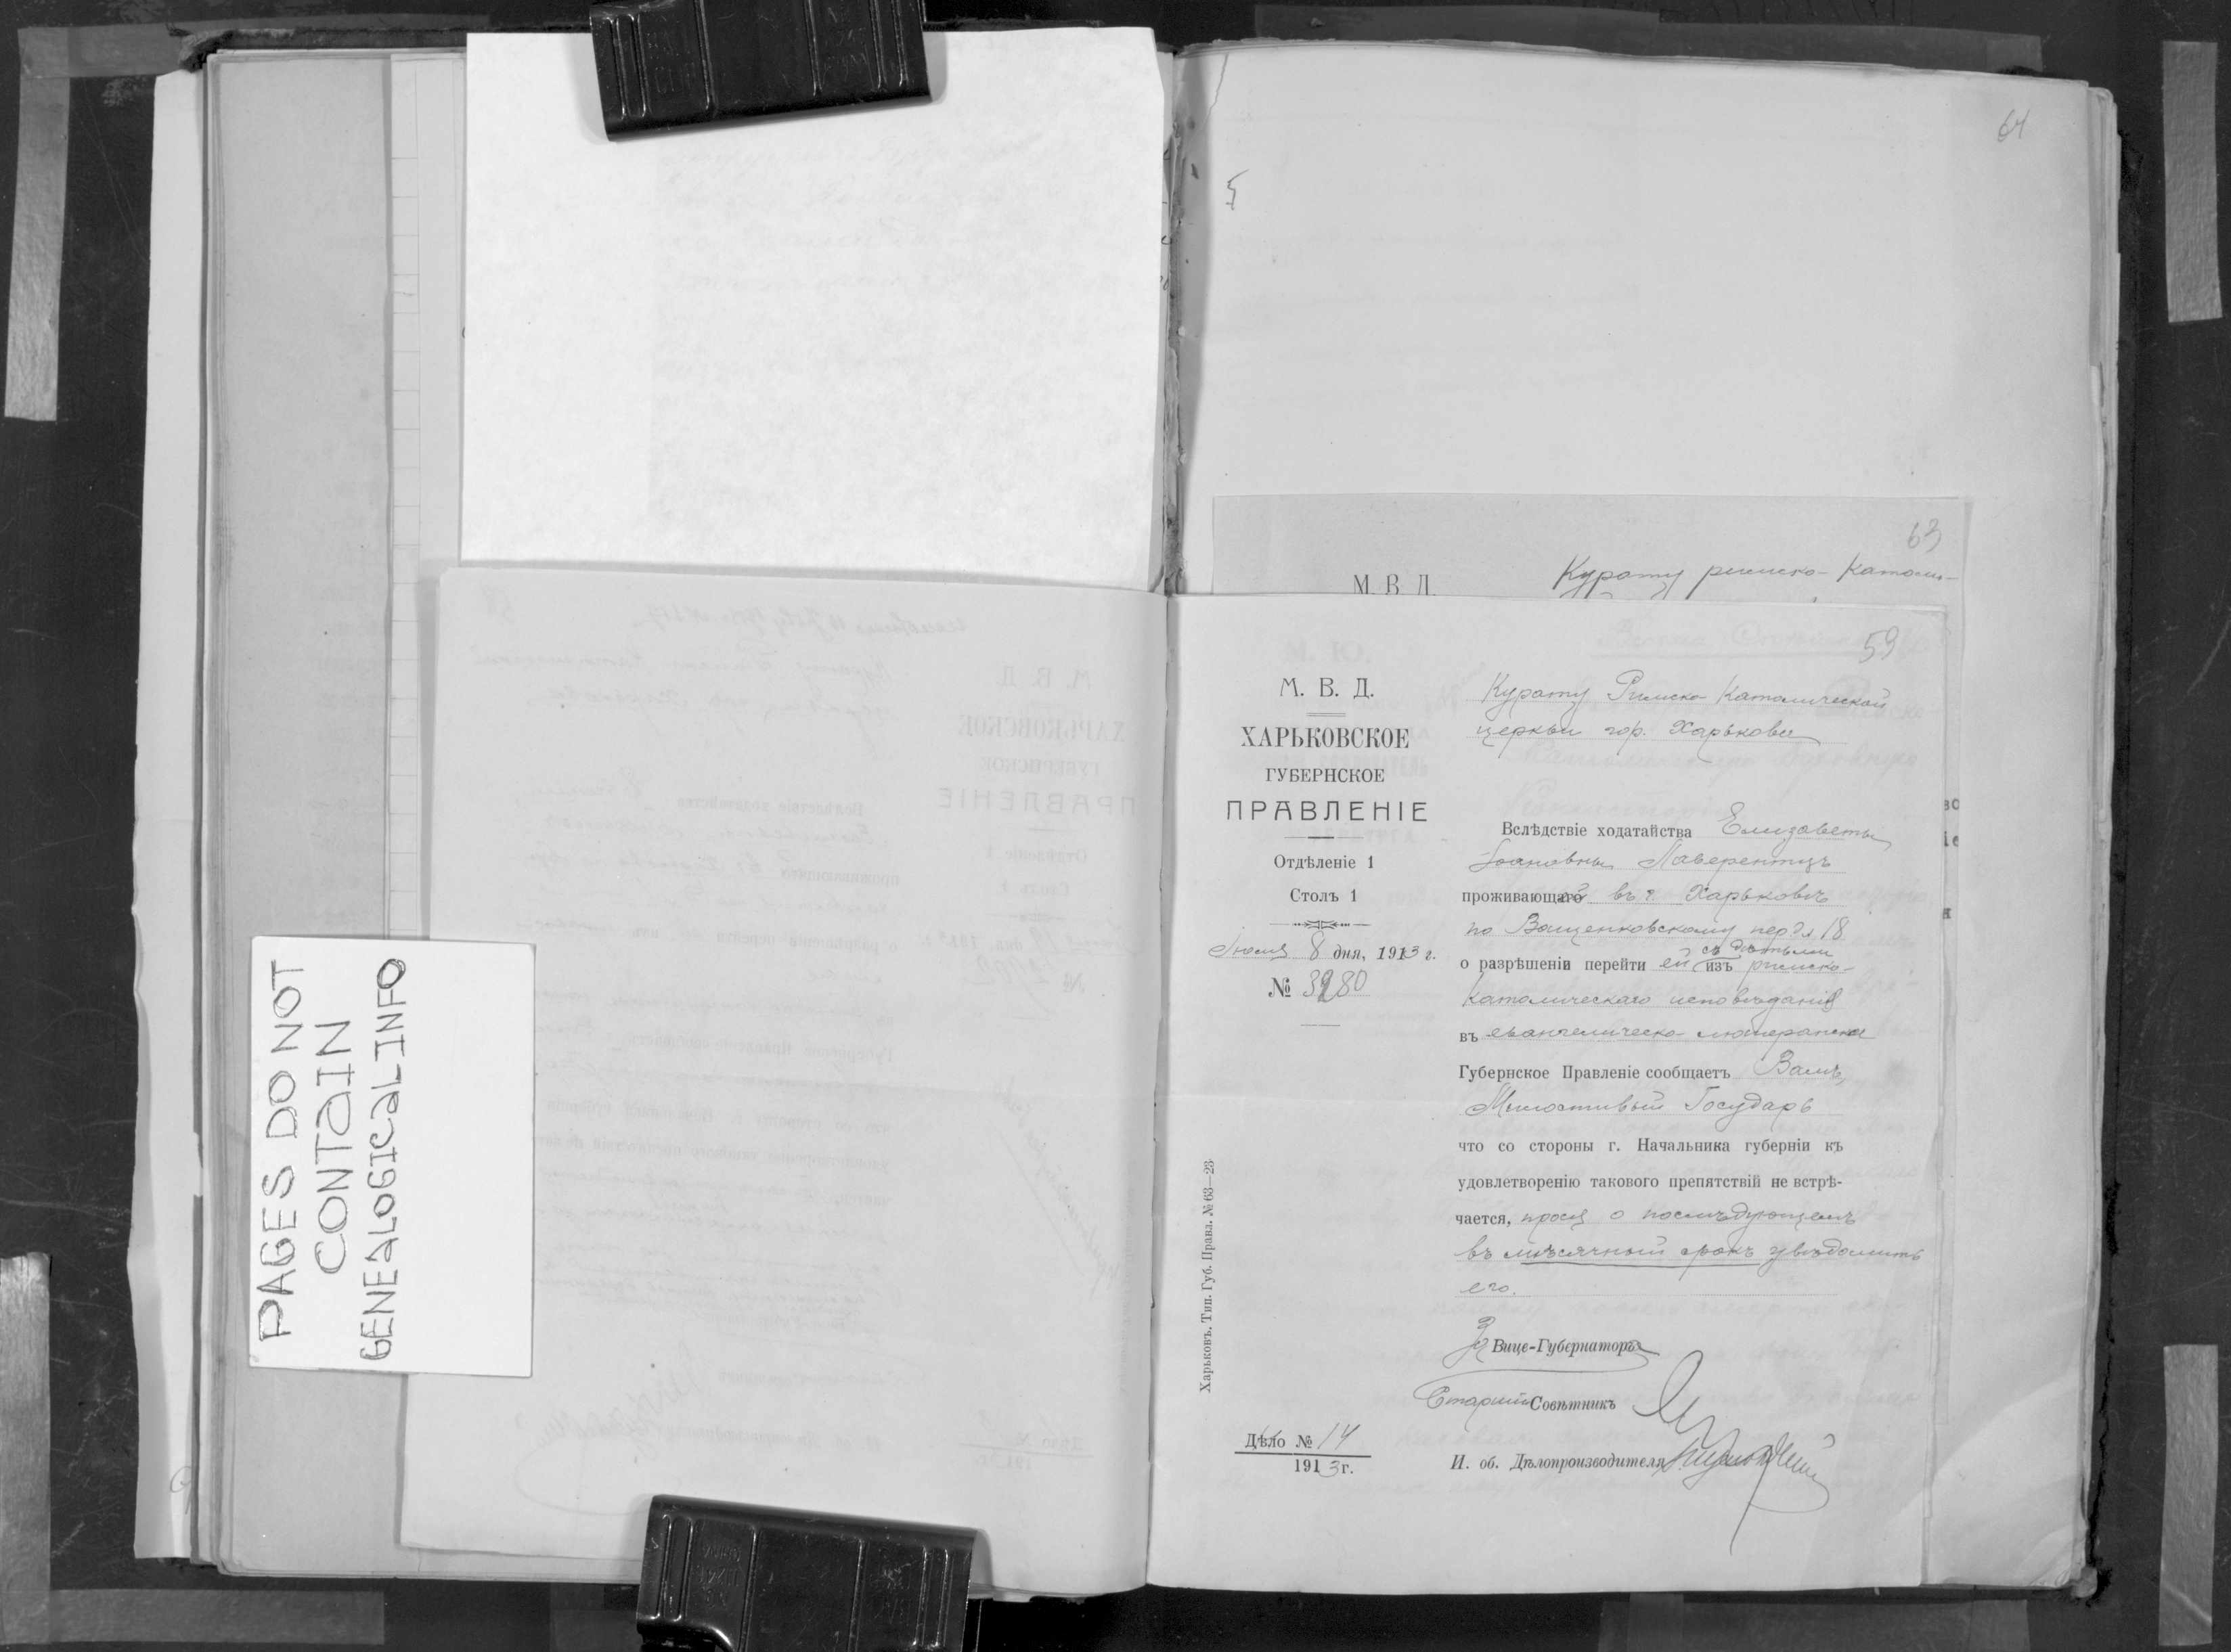 PAGES DO NOT
CONTAIN
GENEALOGICAL INFO
64
63
М. В. Д.
Курату римско-католи-
59
М. В. Д.
ХАРЬКОВСКОЕ
ГУБЕРНСКОЕ
ПРАВЛЕНІЕ
Отдѣленіе 1
Столъ 1
8 дня, 1913 г.
№ 3280
Харьковъ. Тип. Губ. Правл. № 63—23
Дѣло № 14
1913 г.
Курату Римско-Католической
церкви гор. Харькова
Вслѣдствіе ходатайства Елизаветы
Іоановны Лаверентцъ
проживающей въ г. Харьковѣ
по Ващенковскому пер д. 18
о разрѣшеніи перейти ей съ дѣтьми изъ римско-
католическаго исповѣданія
въ евангелическо-лютеранское
Губернское Правленіе сообщаетъ Вамъ,
Милостивый Государь
что со стороны г. Начальника губерніи къ
удовлетворенію такового препятствій не встрѣ-
чается, прося о послѣдующемъ
въ мѣсячный срокъ увѣдомить
его.
За Вице-Губернатора
Старшій Совѣтникъ
И. об. Дѣлопроизводителя